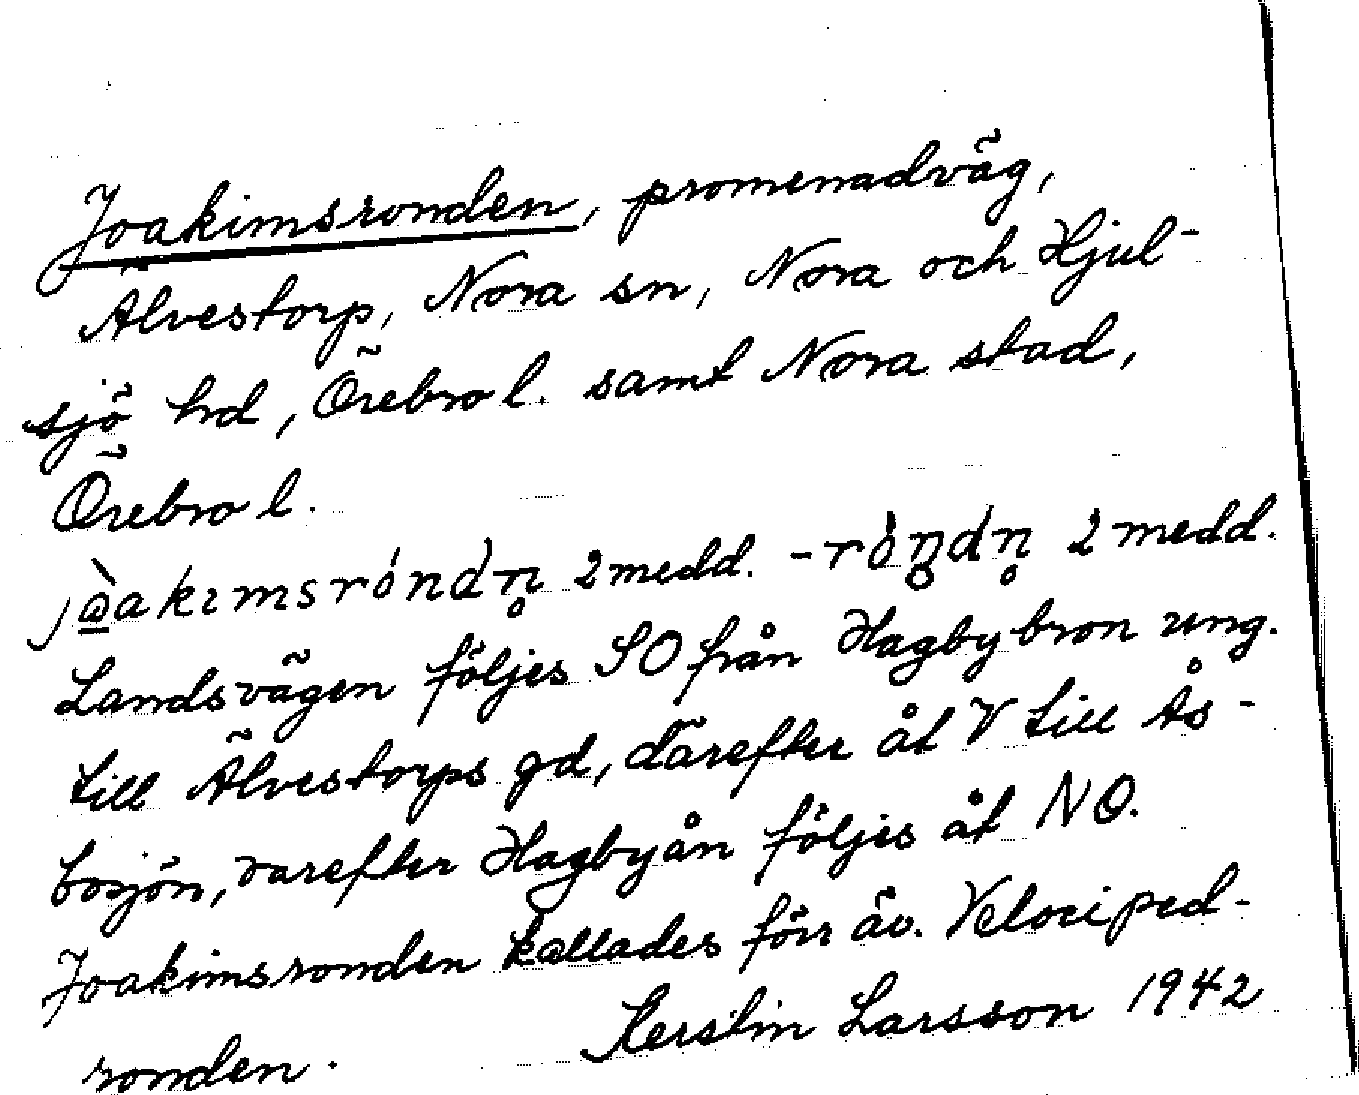 Joakimsronden, promenadväg,
Älvestorp, Nora sn, Nora och Hjul-
sjö hrd, Örebro l. samt Nora stad,
Örebro l.
2 medd. 2 medd.
Landsvägen följes SO från Hagbybron ung.
till Älvestorps gd, därefter åt V till Ås-
bosjön, varefter Hagbyån följes åt NO.
Joakimsronden kallades förr äv. Velociped-
ronden. Kerstin Larsson 1942